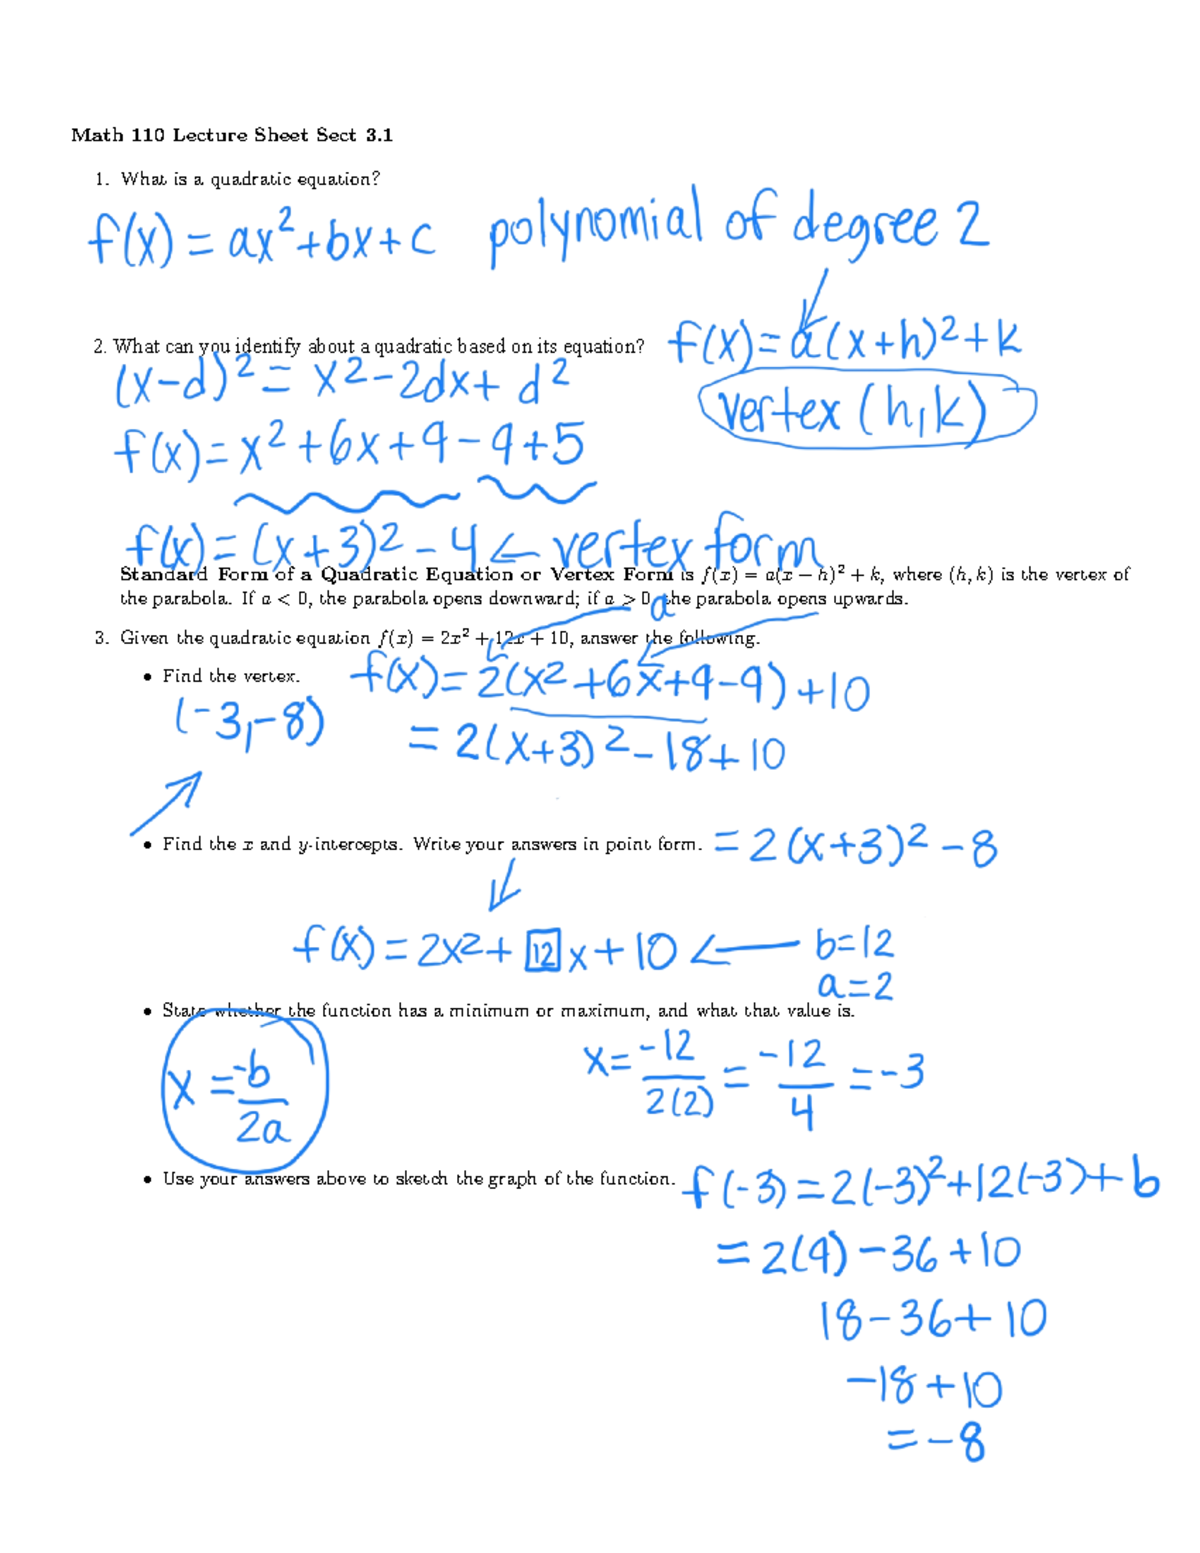 Math 110 Lecture Sheet Sect 3.1
1. What is a quadratic equation?
f(x) = ax²+bx+c polynomial of degree 2
2. What can you identify about a quadratic based on its equation?
f(x)= a(x+h)²+k
(x-d)² = x²-2dx+ d²
vertex (h,k)
f(x)= x²+6x+9-9+5
f(x)= (x+3)²-4 ← vertex form
Standard Form of a Quadratic Equation or Vertex Form is f(x) = a(x − h)² + k, where (h, k) is the vertex of
the parabola. If a < 0, the parabola opens downward; if a > 0, the parabola opens upwards.
a
3. Given the quadratic equation f(x) = 2x² + 12x + 10, answer the following.
• Find the vertex.
f(x)= 2(x²+6x+9-9)+10
(-3,-8)
= 2(x+3)²-18+10
• Find the x and y-intercepts. Write your answers in point form.
= 2(x+3)²-8
f(x)= 2x²+ 12x+10 ← b=12
a=2
• State whether the function has a minimum or maximum, and what that value is.
x = -b/2a
x= -12/2(2) = -12/4 = -3
• Use your answers above to sketch the graph of the function.
f(-3)=2(-3)²+12(-3)+b
= 2(9)-36+10
18-36+10
-18+10
= -8